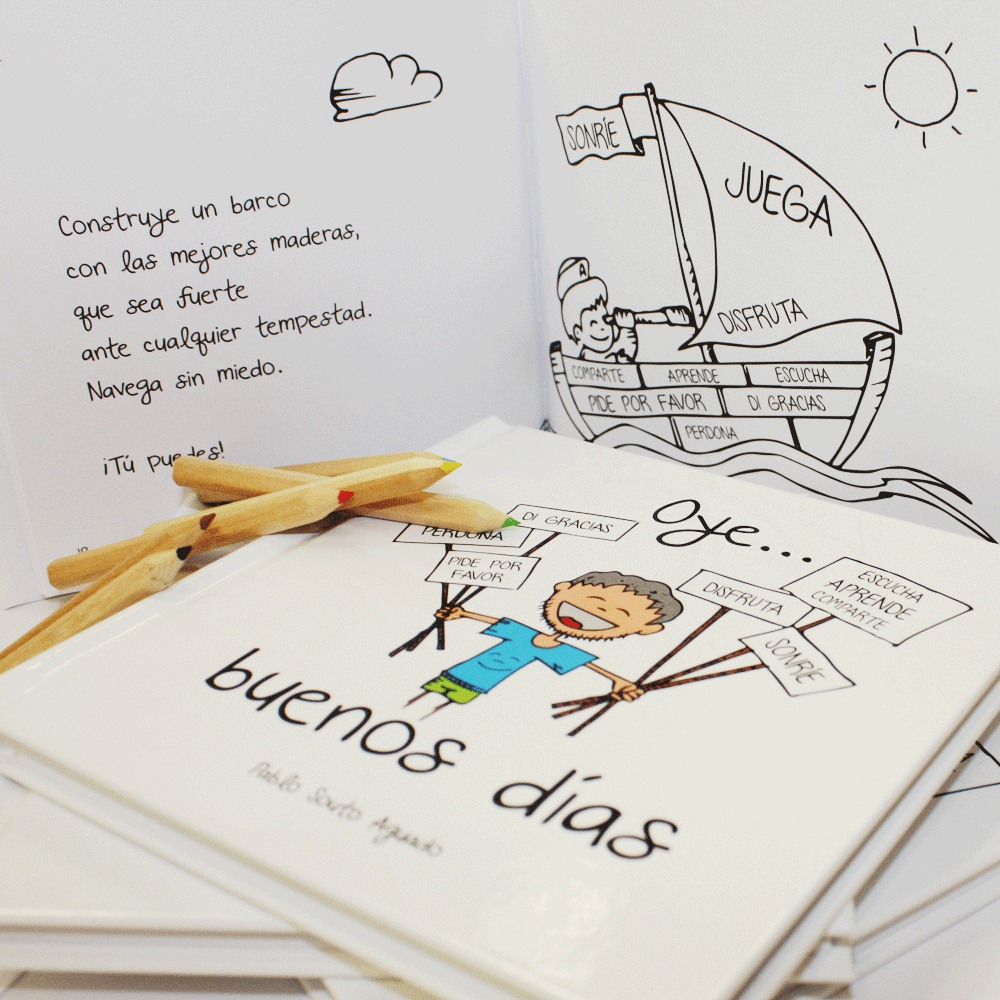 Construye un barco
con las mejores maderas,
que sea fuerte
ante cualquier tempestad.
Navega sin miedo.
¡Tú puedes!
SONRÍE
JUEGA
DISFRUTA
COMPARTE
APRENDE
ESCUCHA
PIDE POR FAVOR
DI GRACIAS
PERDONA
Oye...
DI GRACIAS
PERDONA
PIDE POR
FAVOR
DISFRUTA
ESCUCHA
APRENDE
COMPARTE
SONRÍE
buenos días
Pablo Souto Aguado